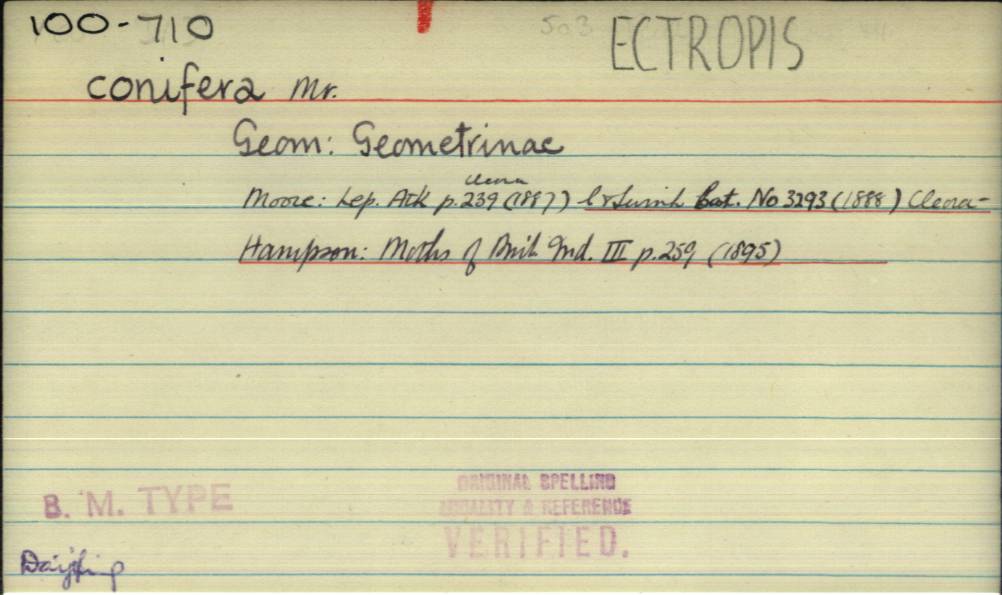 100-710
ECTROPIS
conifera Mr.
Geom: Geometrinae
Cleora
Moore: Lep. Atk p.239 (1887) C & Swinh Cat. No 3293 (1888) Cleora
Hampson: Moths of Brit. Ind. III p.259 (1895)
B. M. TYPE
ORIGINAL SPELLING
LOCALITY & REFERENCE
VERIFIED.